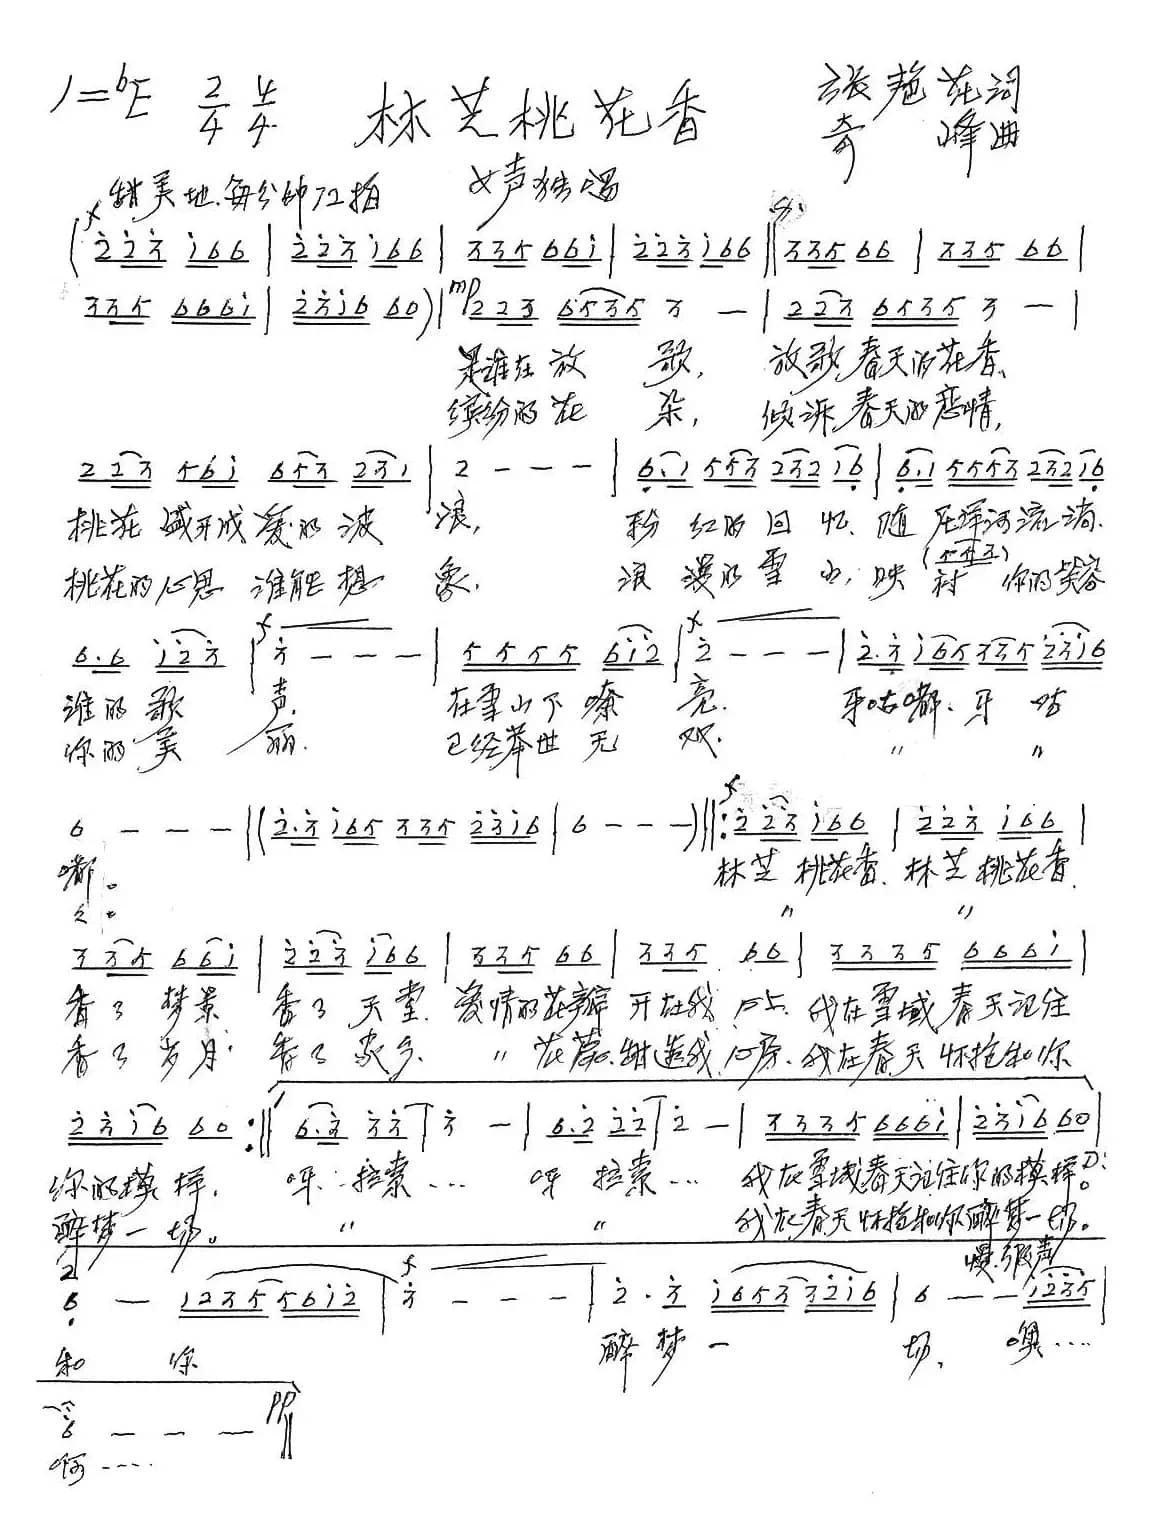 1=bE 2/4 4/4 林芝桃花香 张艳花词
奇峰曲
精美地.每分钟72拍 女声独唱
(f 2 2 3 1 6 6 | 2 2 3 1 6 6 | 3 3 5 6 6 1 | 2 2 3 1 6 6 || 3 3 5 6 6 | 3 3 5 6 6 |
3 3 5 6 6 6 1 | 2 3 1 6 6 0) | mp 2 2 3 6 5 3 5 3 — | 2 2 3 6 5 3 5 3 — |
是谁在放歌, 放歌春天的花香、
缤纷的花朵, 倾诉春天的恋情,
2 2 3 5 6 1 6 5 3 2 3 1 | 2 — — — | 6. 1 5 5 3 2 3 2 1 6 | 6. 1 5 5 5 3 2 3 2 1 6
桃花盛开成爱的波浪, 粉红的回忆.随尼洋河流淌.
(5 5 3)
桃花的心思谁能想象. 浪漫的雪山,映衬你的笑容
6. 6 1 2 3 | f 3 — — — | 5 5 5 5 6 1 2 | f 2 — — — | 2. 3 1 6 5 3 3 5 2 3 1 6
谁的歌声. 在雪山下嘹亮. 牙咕嘟.牙咕
你的美丽. 已经举世无双. 〃 〃
6 — — — || (2. 3 1 6 5 3 3 5 2 3 1 6 | 6 — — —) ||: f 2 2 3 1 6 6 | 2 2 3 1 6 6 |
嘟。 林芝桃花香.林芝桃花香.
〃 〃
3 3 5 6 6 1 | 2 2 3 1 6 6 | 3 3 5 6 6 | 3 3 5 6 6 | 3 3 3 5 6 6 6 1 |
香了梦景 香了天堂.爱情的花瓣开在我 我在雪域春天记住
香了岁月 香了家乡. 〃 花蕊 我 心房.我在春天怀抱和你
2 3 1 6 6 0 :|| 6. 3 3 3 | 3 — | 6. 2 2 2 | 2 — | 3 3 3 5 6 6 6 1 | 2 3 1 6 6 0 |
你的模样. 呀 拉索… 呀 拉索… 我在雪域春天记住你的模样。D:
醉梦一场。 〃 〃 我在春天怀抱和你醉梦一场。
慢.
2
6 — 1 2 3 5 5 6 1 2 | f 3 — — — | 2. 3 1 6 5 3 3 2 1 6 | 6 — — 1 2 3 5 |
和你 醉梦一场, 噢….
6 — — — pp ||
啊….